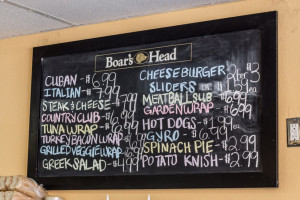 Boar's Head
CUBAN - $6.99
ITALIAN - $7.99
STEAK & CHEESE - $7.99
COUNTRY CLUB - $7.99
TUNA WRAP - $7.99
TURKEY BACON WRAP
GRILLED VEGGIE WRAP
GREEK SALAD - $4.99
CHEESEBURGER
SLIDERS
MEATBALL SUB - $6.99
GARDEN WRAP - $6.99
HOT DOGS
GYRO
SPINACH PIE - $2.99
POTATO KNISH - $2.99